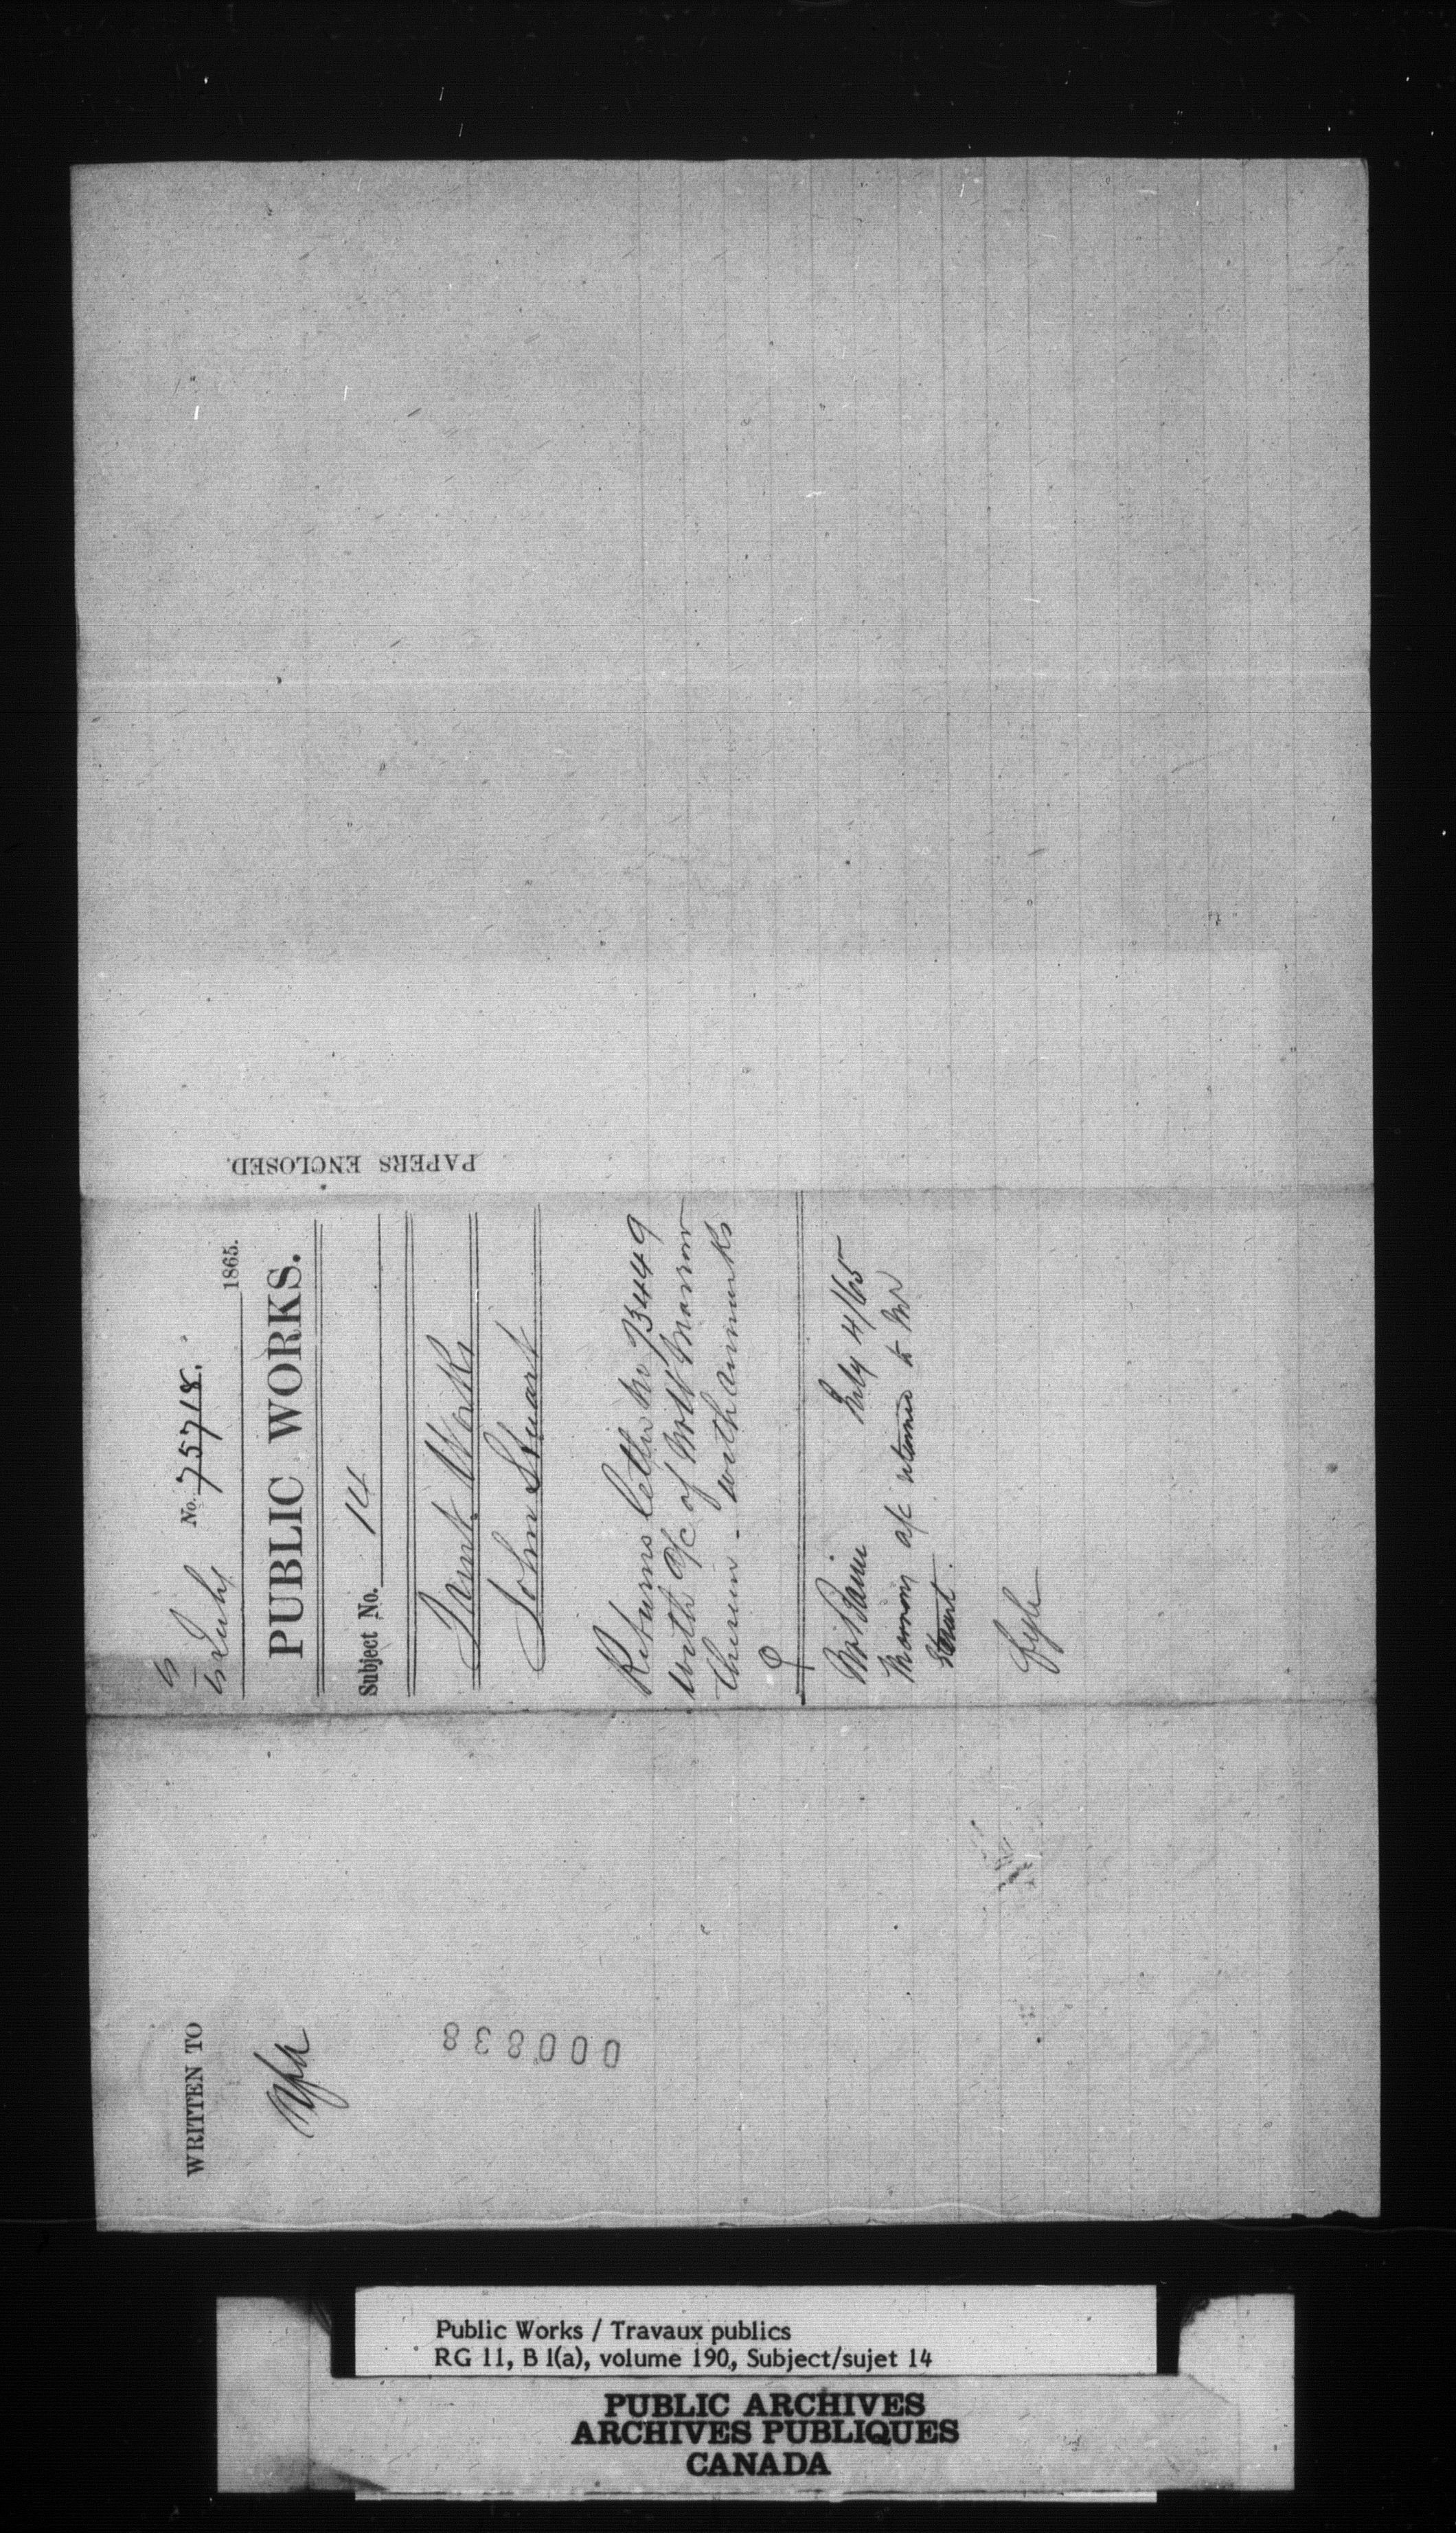 No. 75718.
5 July 1865.
PUBLIC WORKS.
Subject No. 14
Works
John Stuart
Returns letter No 73449
with a/c of Morrow
therein - with remarks
July 4/65
Morrow a/c returned to Mr
Stuart.
Fyle
PAPERS ENCLOSED.
WRITTEN TO
000838
Public Works / Travaux publics
RG 11, B 1(a), volume 190, Subject/sujet 14
PUBLIC ARCHIVES
ARCHIVES PUBLIQUES
CANADA